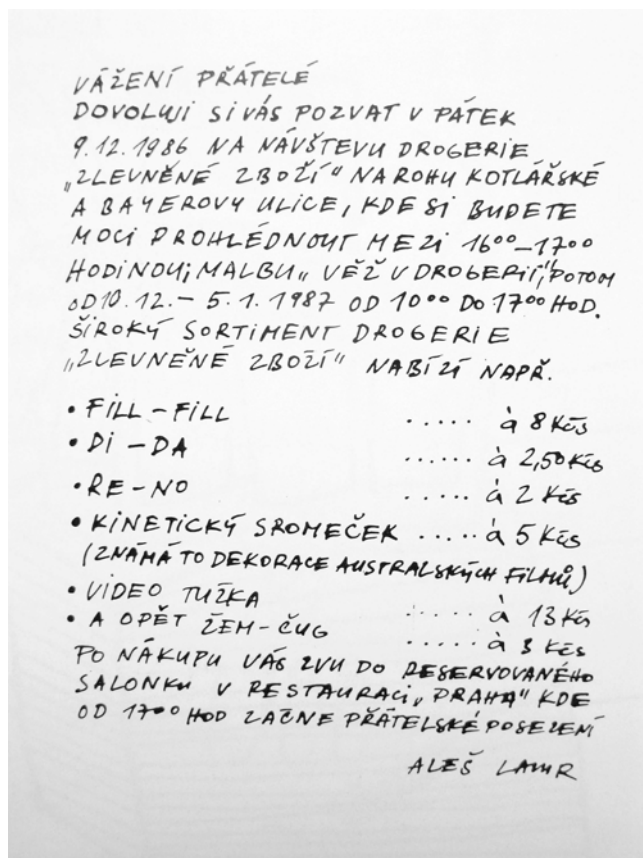 VÁŽENÍ PŘÁTELÉ
DOVOLUJI SI VÁS POZVAT V PÁTEK
9.12.1986 NA NÁVŠTEVU DROGERIE
„ZLEVNĚNÉ ZBOŽÍ" NA ROHU KOTLÁŘSKÉ
A BAYEROVY ULICE, KDE SI BUDETE
MOCI PROHLÉDNOUT MEZI 16⁰⁰–17⁰⁰
HODINOU; MALBU „VĚŽ V DROGERII", POTOM
OD 10.12.– 5.1.1987 OD 10⁰⁰ DO 17⁰⁰ HOD.
ŠIROKÝ SORTIMENT DROGERIE
„ZLEVNĚNÉ ZBOŽÍ" NABÍZÍ NAPŘ.
• FILL – FILL ..... à 8 Kčs
• DI – DA ...... à 2,50 Kčs
• RE – NO ..... à 2 Kčs
• KINETICKÝ SROMEČEK ..... à 5 Kčs
(ZNÁMÁ TO DEKORACE AUSTRALSKÝCH FILMŮ)
• VIDEO TUŽKA ..... à 13 Kčs
• A OPĚT ŽEM-ČUG ..... à 3 Kčs
PO NÁKUPU VÁS ZVU DO RESERVOVANÉHO
SALONKU V RESTAURACI „PRAHA" KDE
OD 17⁰⁰ HOD ZAČNE PŘÁTELSKÉ POSEZENÍ
ALEŠ LAMR